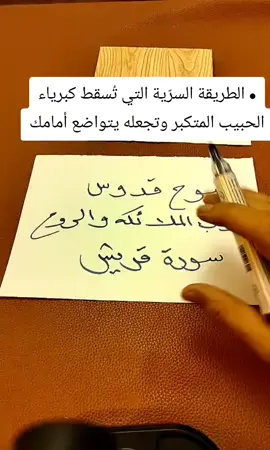 • الطريقة السرّية التي تُسقط كبرياء
الحبيب المتكبر وتجعله يتواضع أمامك
وح قدوس
ب الملائكة والروح
سورة قريش